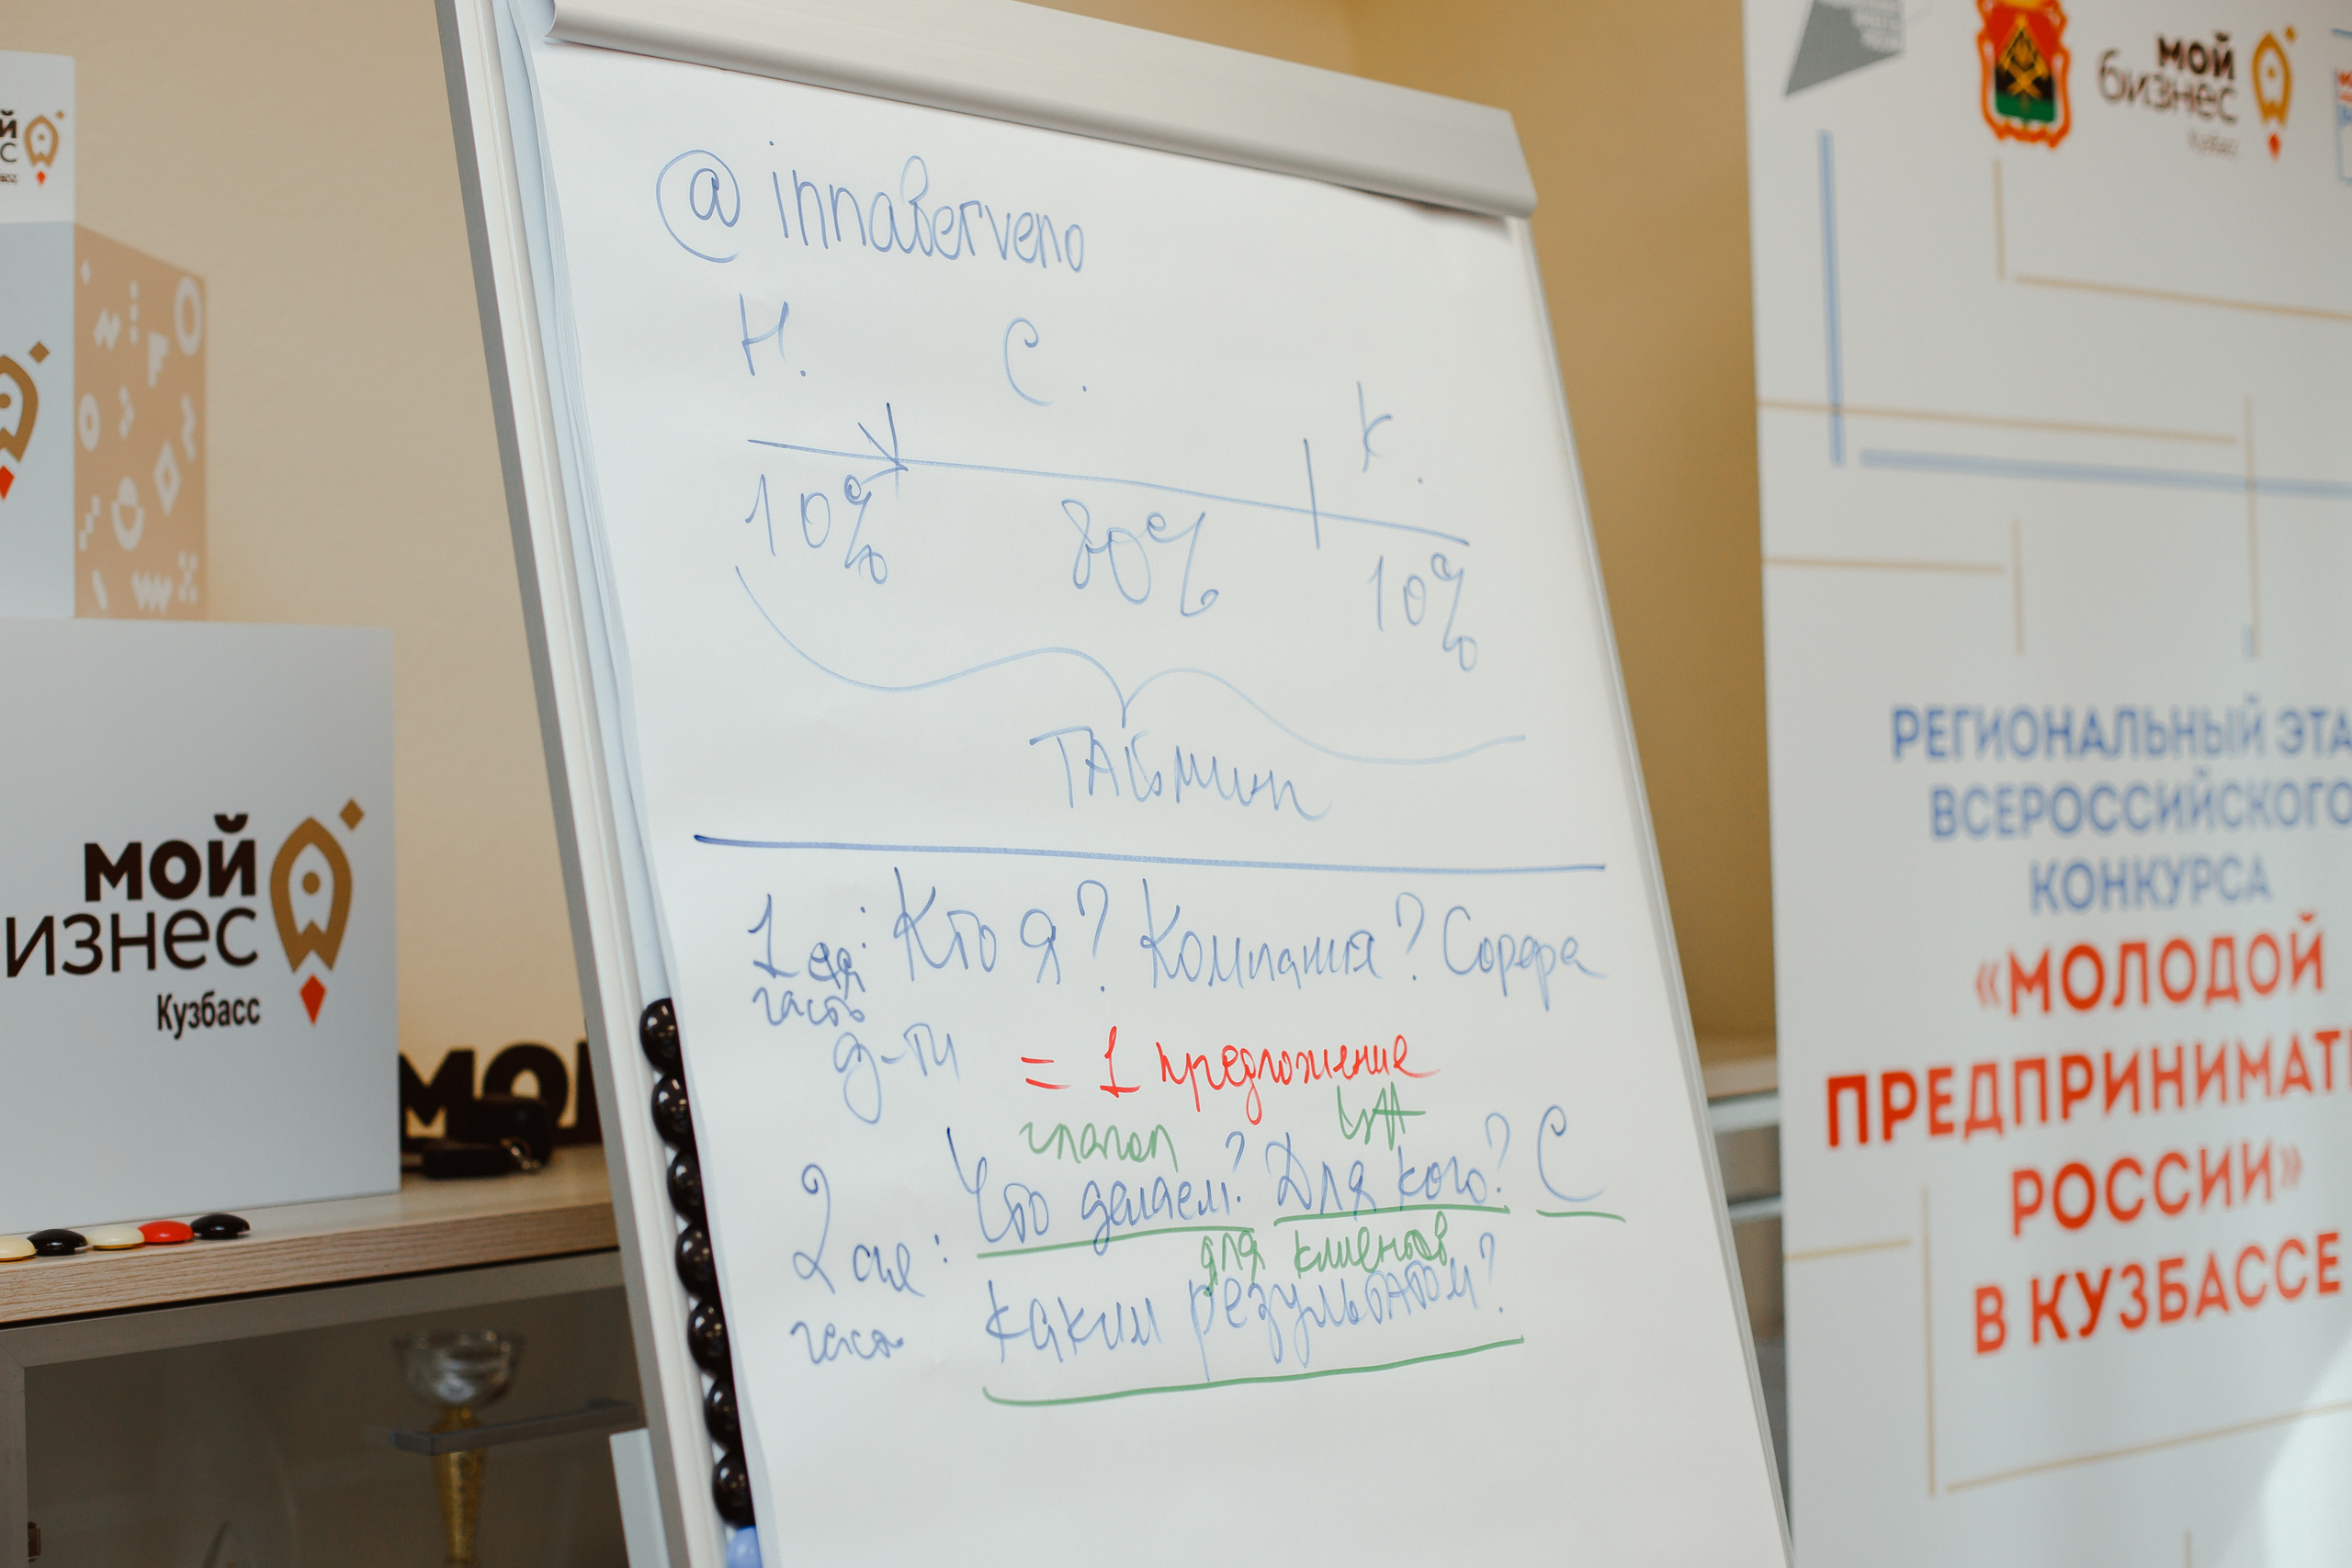 @innaberveno
Н. С. К.
10% 80% 10%
ТАЙМИНГ
1 ая часть: Кто я? Компания? Сфера
д-ти = 1 предложение
глагол ЦА
2 ая часть: Что делаем? Для кого? С
для клиентов
каким результатом?
й
с
басс
мой
изнес
Кузбасс
МОЙ
мой
бизнес
Кузбасс
РЕГИОНАЛЬНЫЙ ЭТА
ВСЕРОССИЙСКОГО
КОНКУРСА
«МОЛОДОЙ
ПРЕДПРИНИМАТ
РОССИИ»
В КУЗБАССЕ